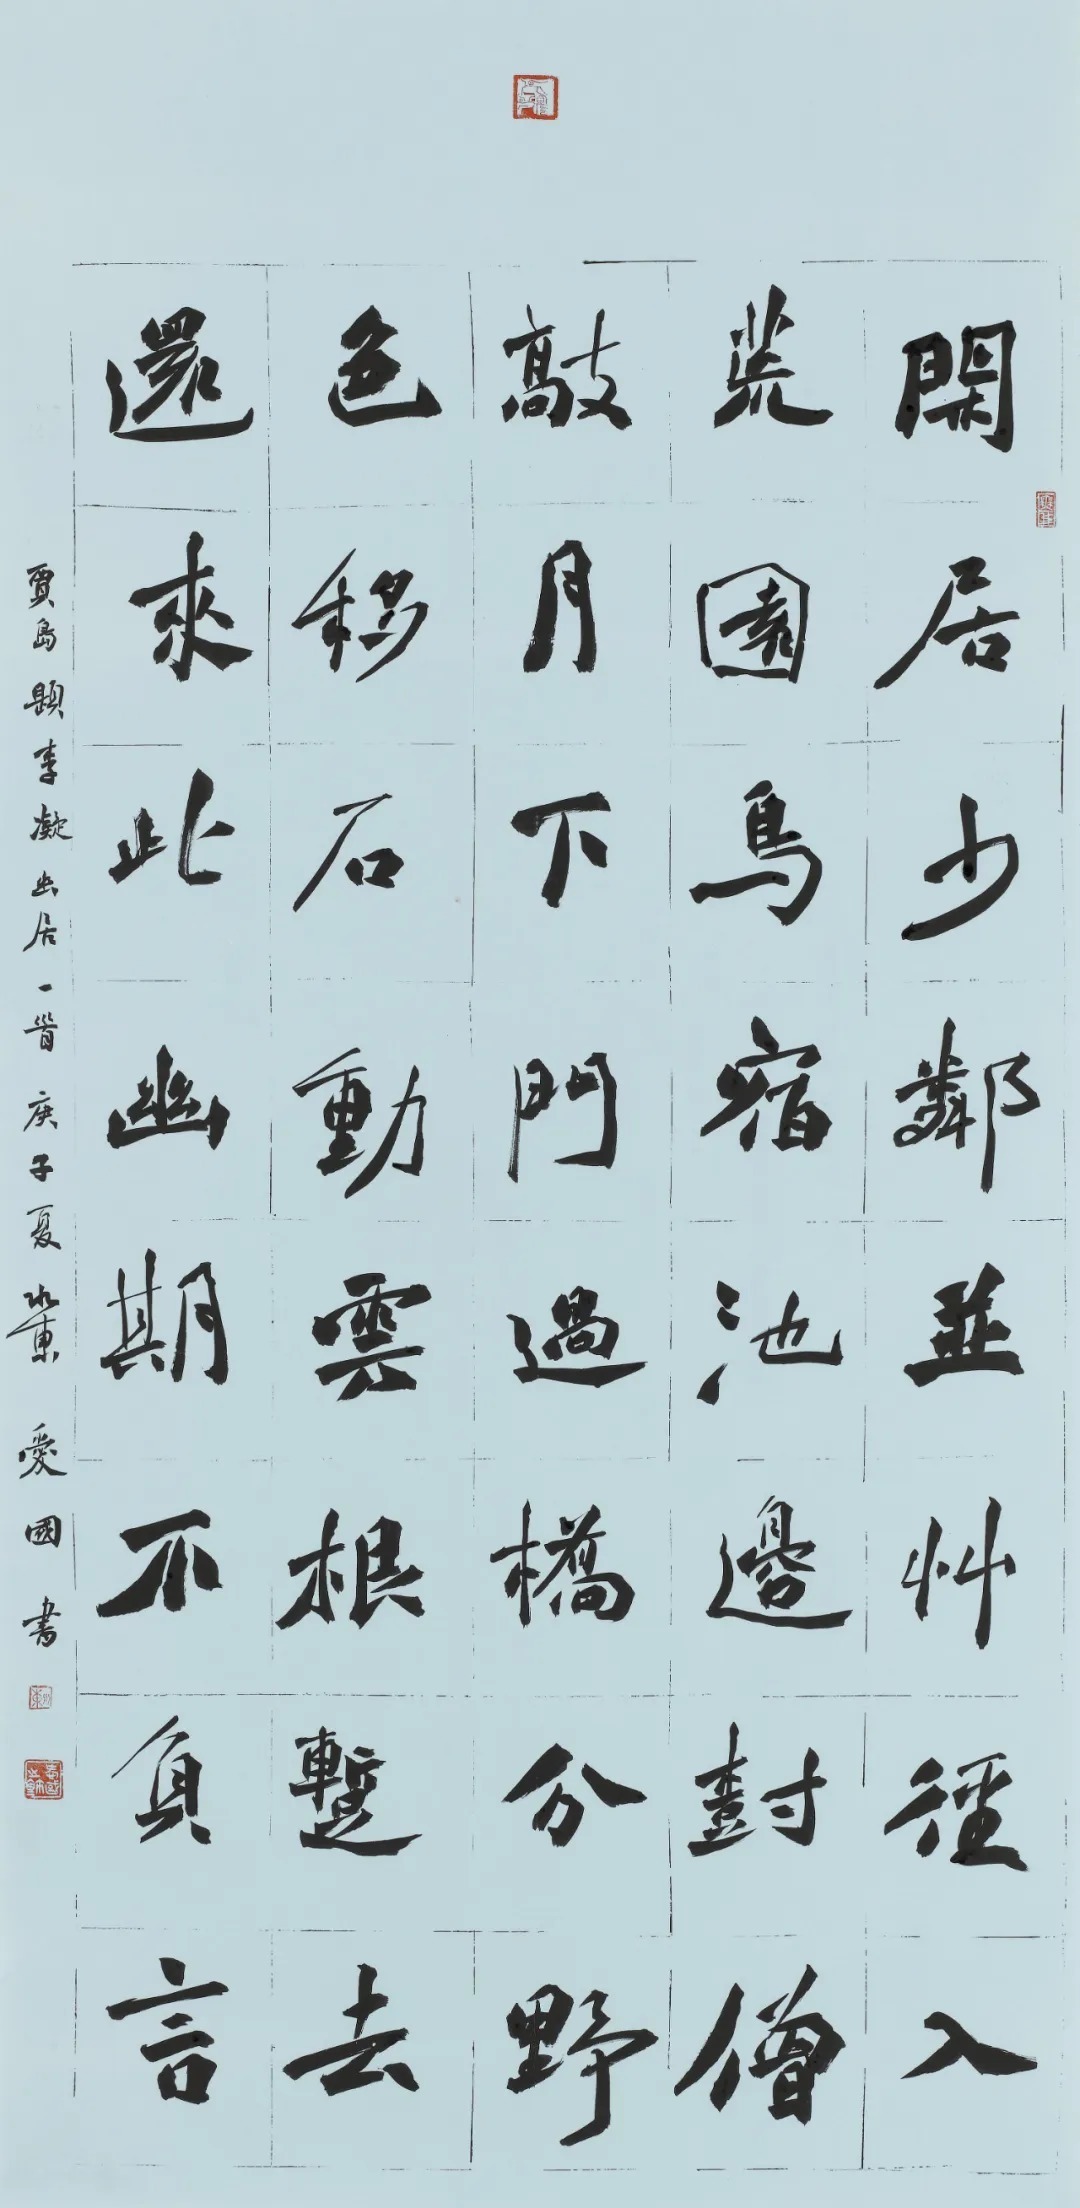 閑居少鄰並艸徑入
荒園鳥宿池邊尌僧
敲月下門過橋分野
色移石動雲根蹔去
還來此幽期不負言
賈島題李凝幽居一首庚子夏愛國書